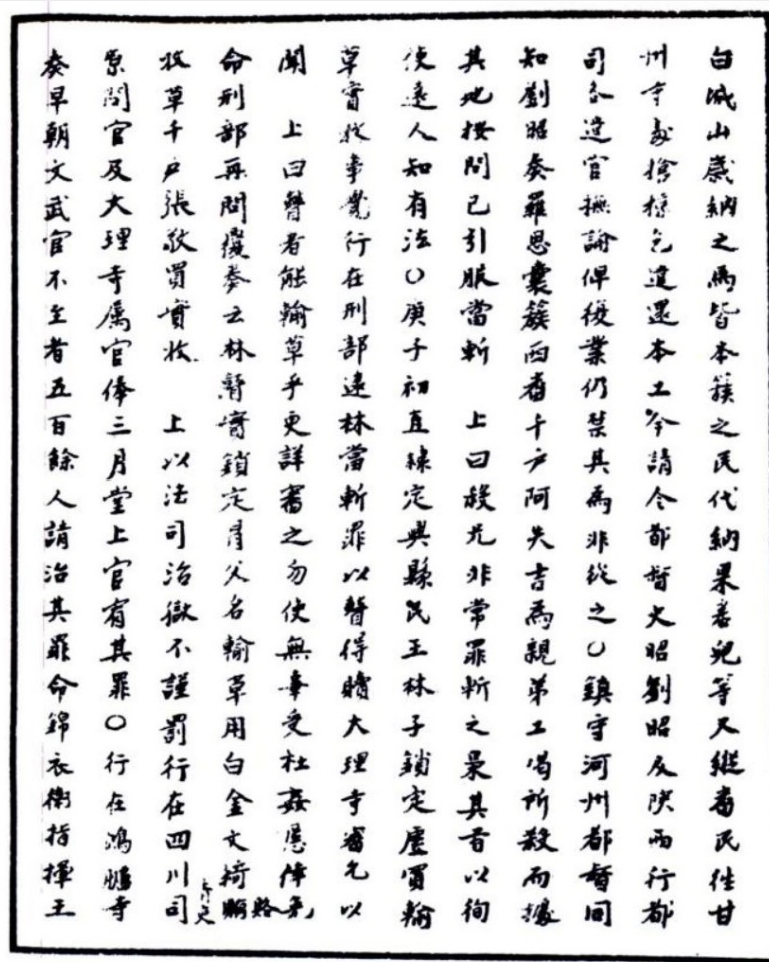 白城山歲納之馬皆本簇之民代納果着兒等又縱畨民徃甘
州等處搶掠乞遣還本土今請令都督史昭劉昭及陝西行都
司各遣官撫諭俾復業仍禁其為非從之○鎮守河州都督同
知劉昭奏羅思囊簇西畨千户阿失吉為親弟工噶所殺而據
其地按問已引服當斬　上曰殺兄非常罪斬之梟其首以徇
使遠人知有法○庚子初直隸定興縣民王林子鎖定虛買輸
草實收事覺行在刑部逮林當斬罪以瞽得贖大理寺審允以
聞　上曰瞽者能輸草乎更詳審之勿使無辜受枉姦慝倖免
命刑部再問覆奏云林瞽實鎖定冐父名輸草用白金文綺賄賂
收草千户張敬買實收　上以法司治獄不謹罰行在四川司
原問官及大理寺屬官俸三月堂上官宥其罪○行在鴻臚寺
奏早朝文武官不至者五百餘人請治其罪命錦衣衛指揮王